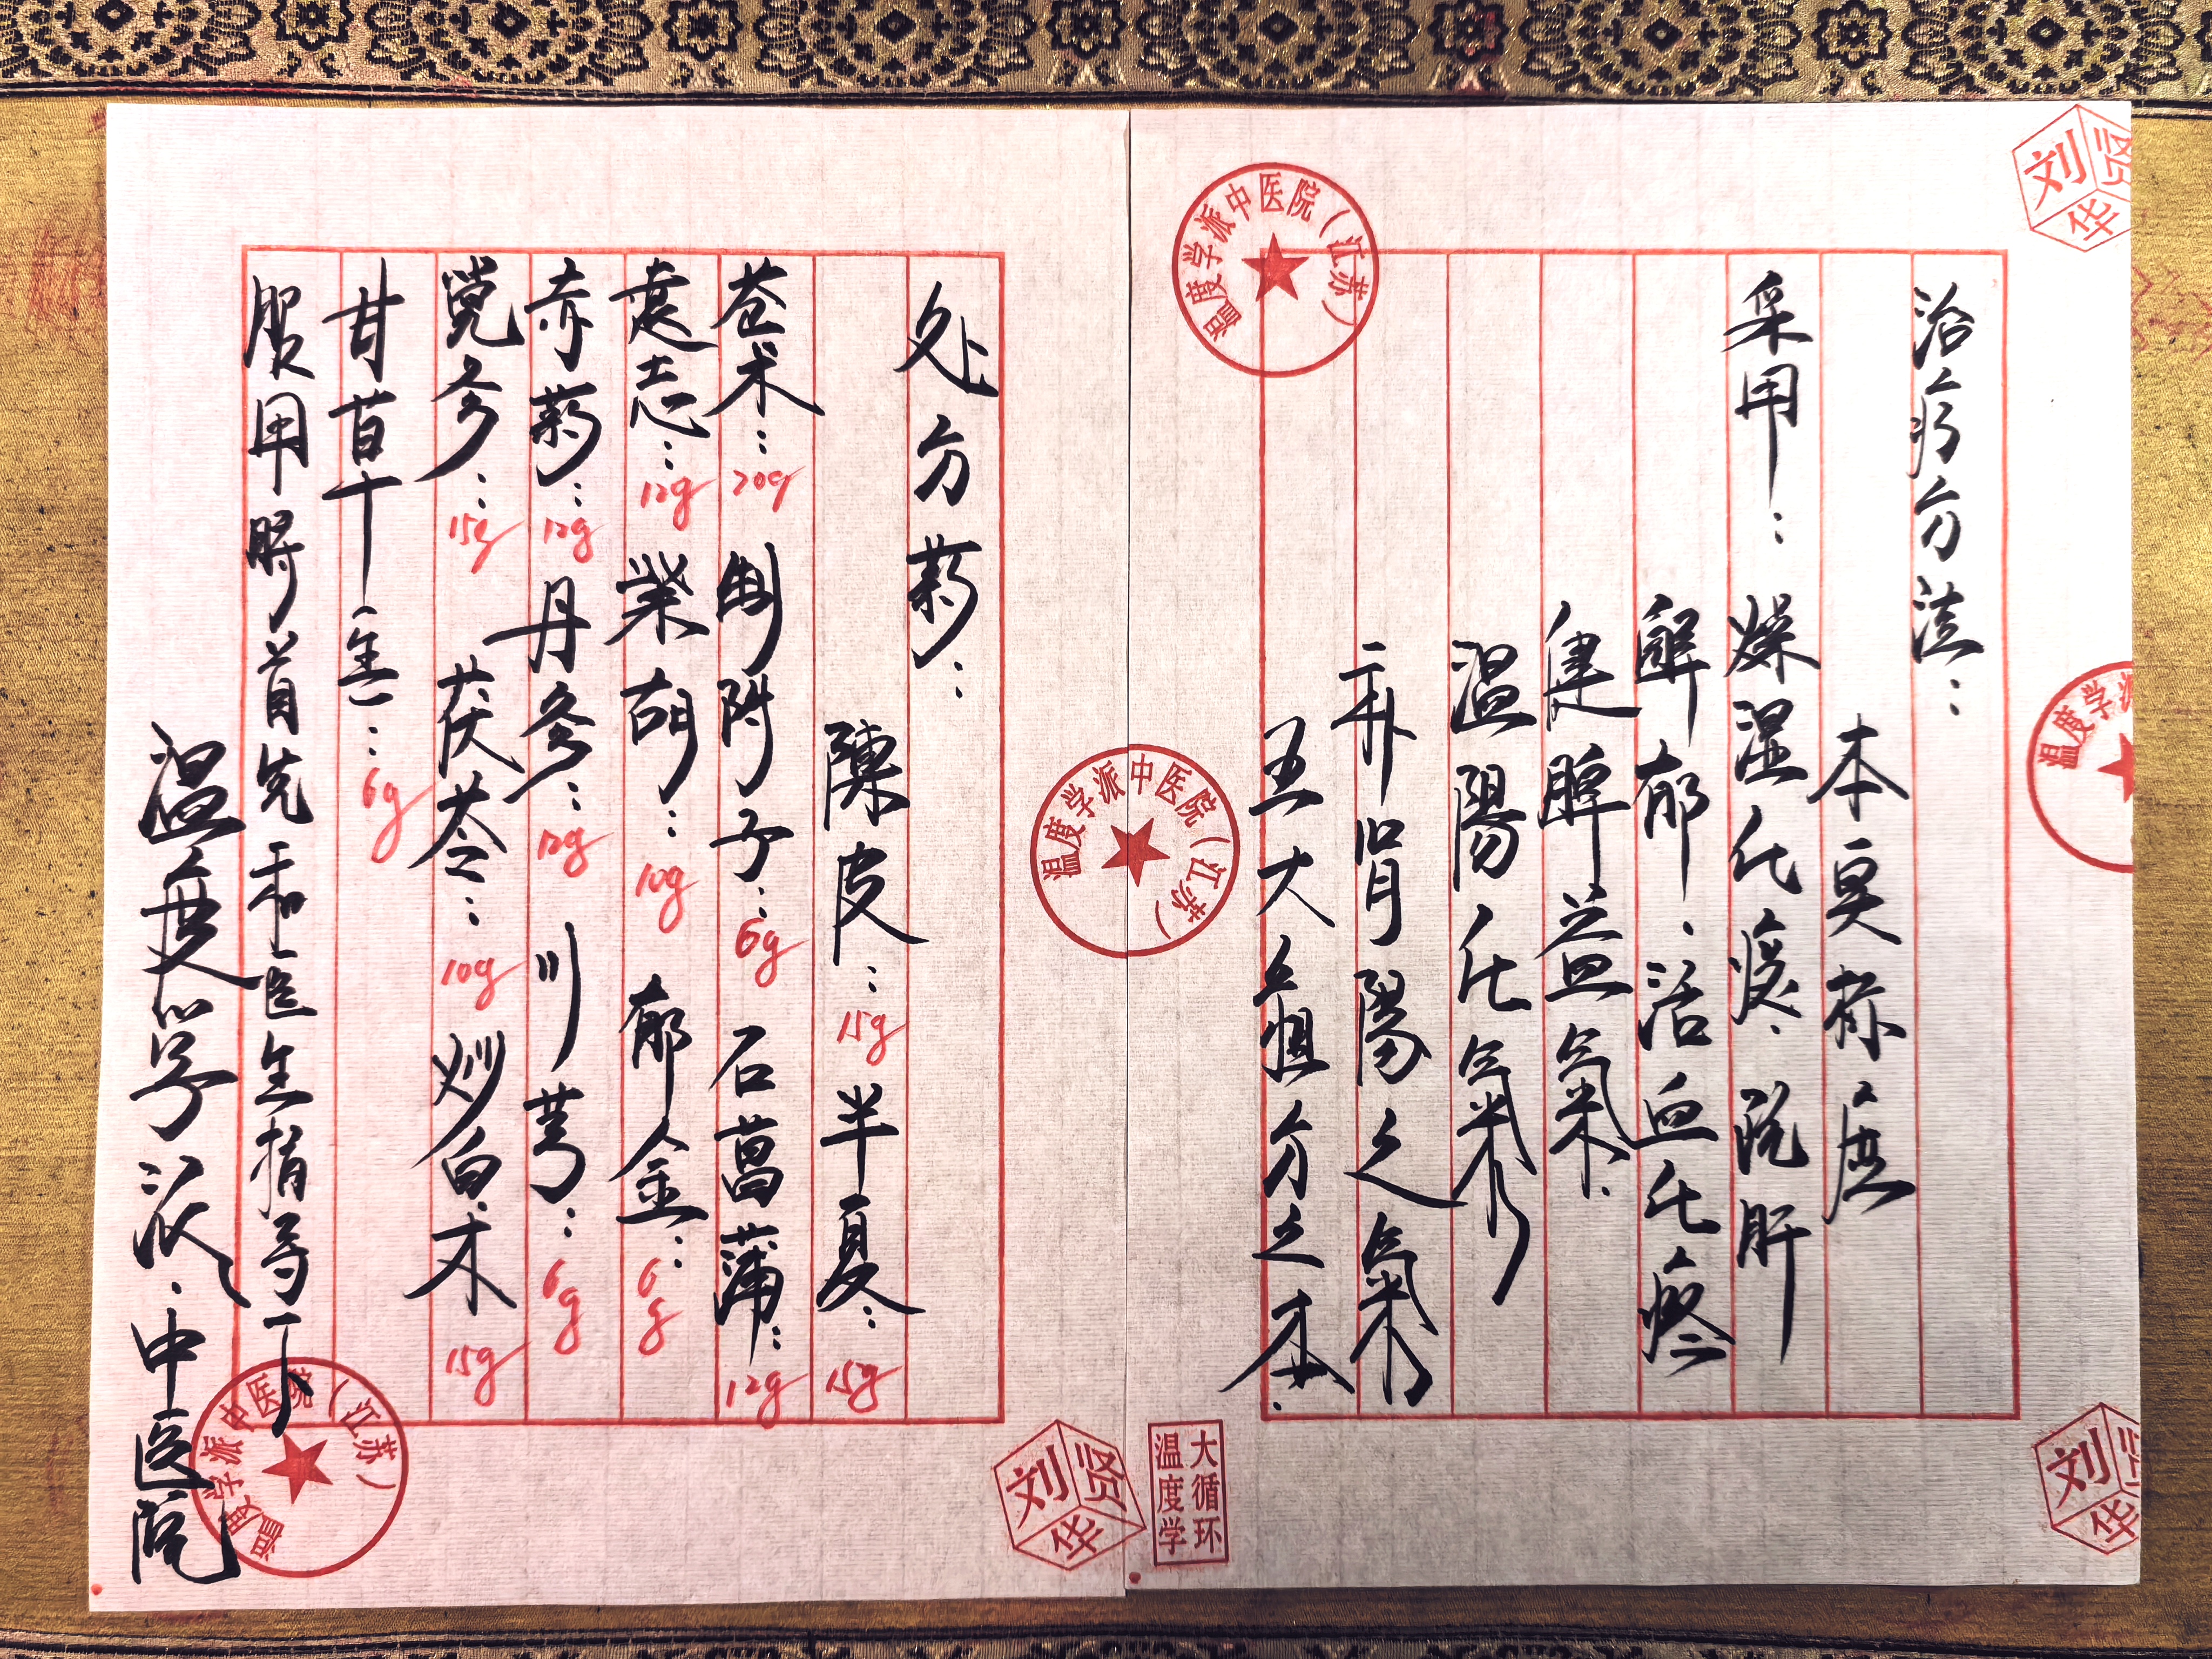 治疗方法：
本虚标实
采用：燥湿化痰、疏肝
解郁、活血化瘀
健脾益氣、
温陽化氣
補腎陽之氣
五大組方之本、
处方薬：
陳皮：15g 半夏：15g
苍术：20g 制附子：6g 石菖蒲：12g
远志：12g 柴胡：10g 郁金：6g
赤药：12g 丹参：12g 川芎：6g
党参：15g 茯苓：10g 炒白术 15g
甘草：6g
服用時首先和医生指导下
温度学派、中医院
温度学派中医院（江苏）
温度学派中医院（江苏）
温度学派中医院（江苏）
温度学派
刘贤华
刘贤华
刘贤华
大循环
温度学